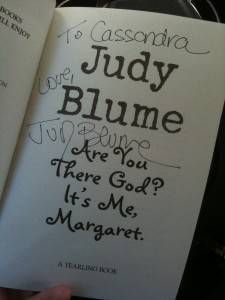 BOOKS
ILL ENJOY
ON
To Cassondra
Judy
Love,
Blume
Judy Blume
Are You
There God?
It's Me,
Margaret.
A YEARLING BOOK